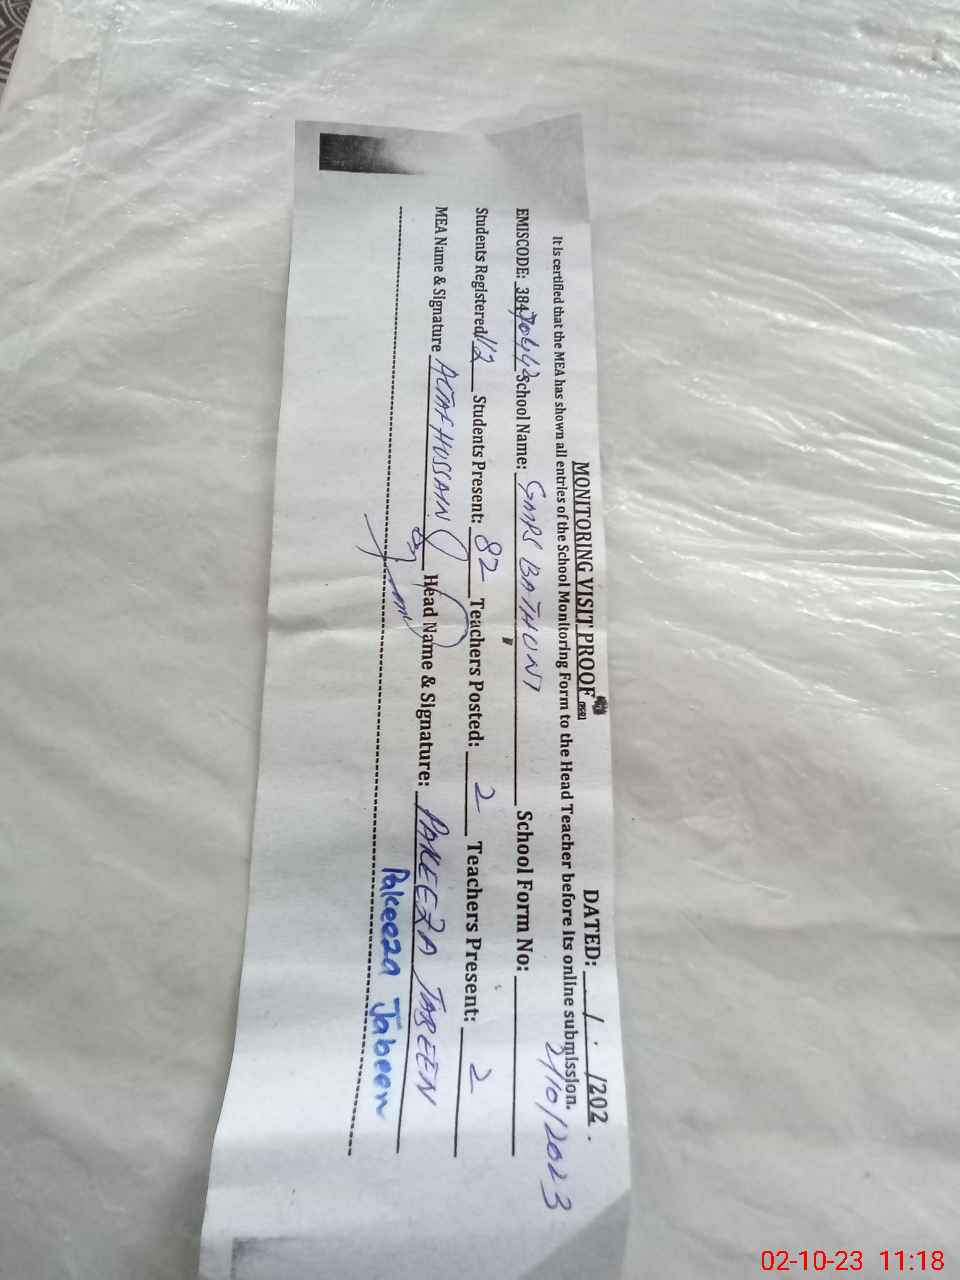 MONITORING VISIT PROOF
DATED: __/__/202 .
It is certified that the MEA has shown all entries of the School Monitoring Form to the Head Teacher before its online submission.
2/10/2023
EMISCODE: 38470443 School Name: GMPS BATHUNI School Form No:
Students Registered 112 Students Present: 82 Teachers Posted: 2 Teachers Present: 2
MEA Name & Signature ALTAF HUSSAIN Head Name & Signature: PAKEEZA JABEEN
Pakeeza Jabeen
02-10-23 11:18